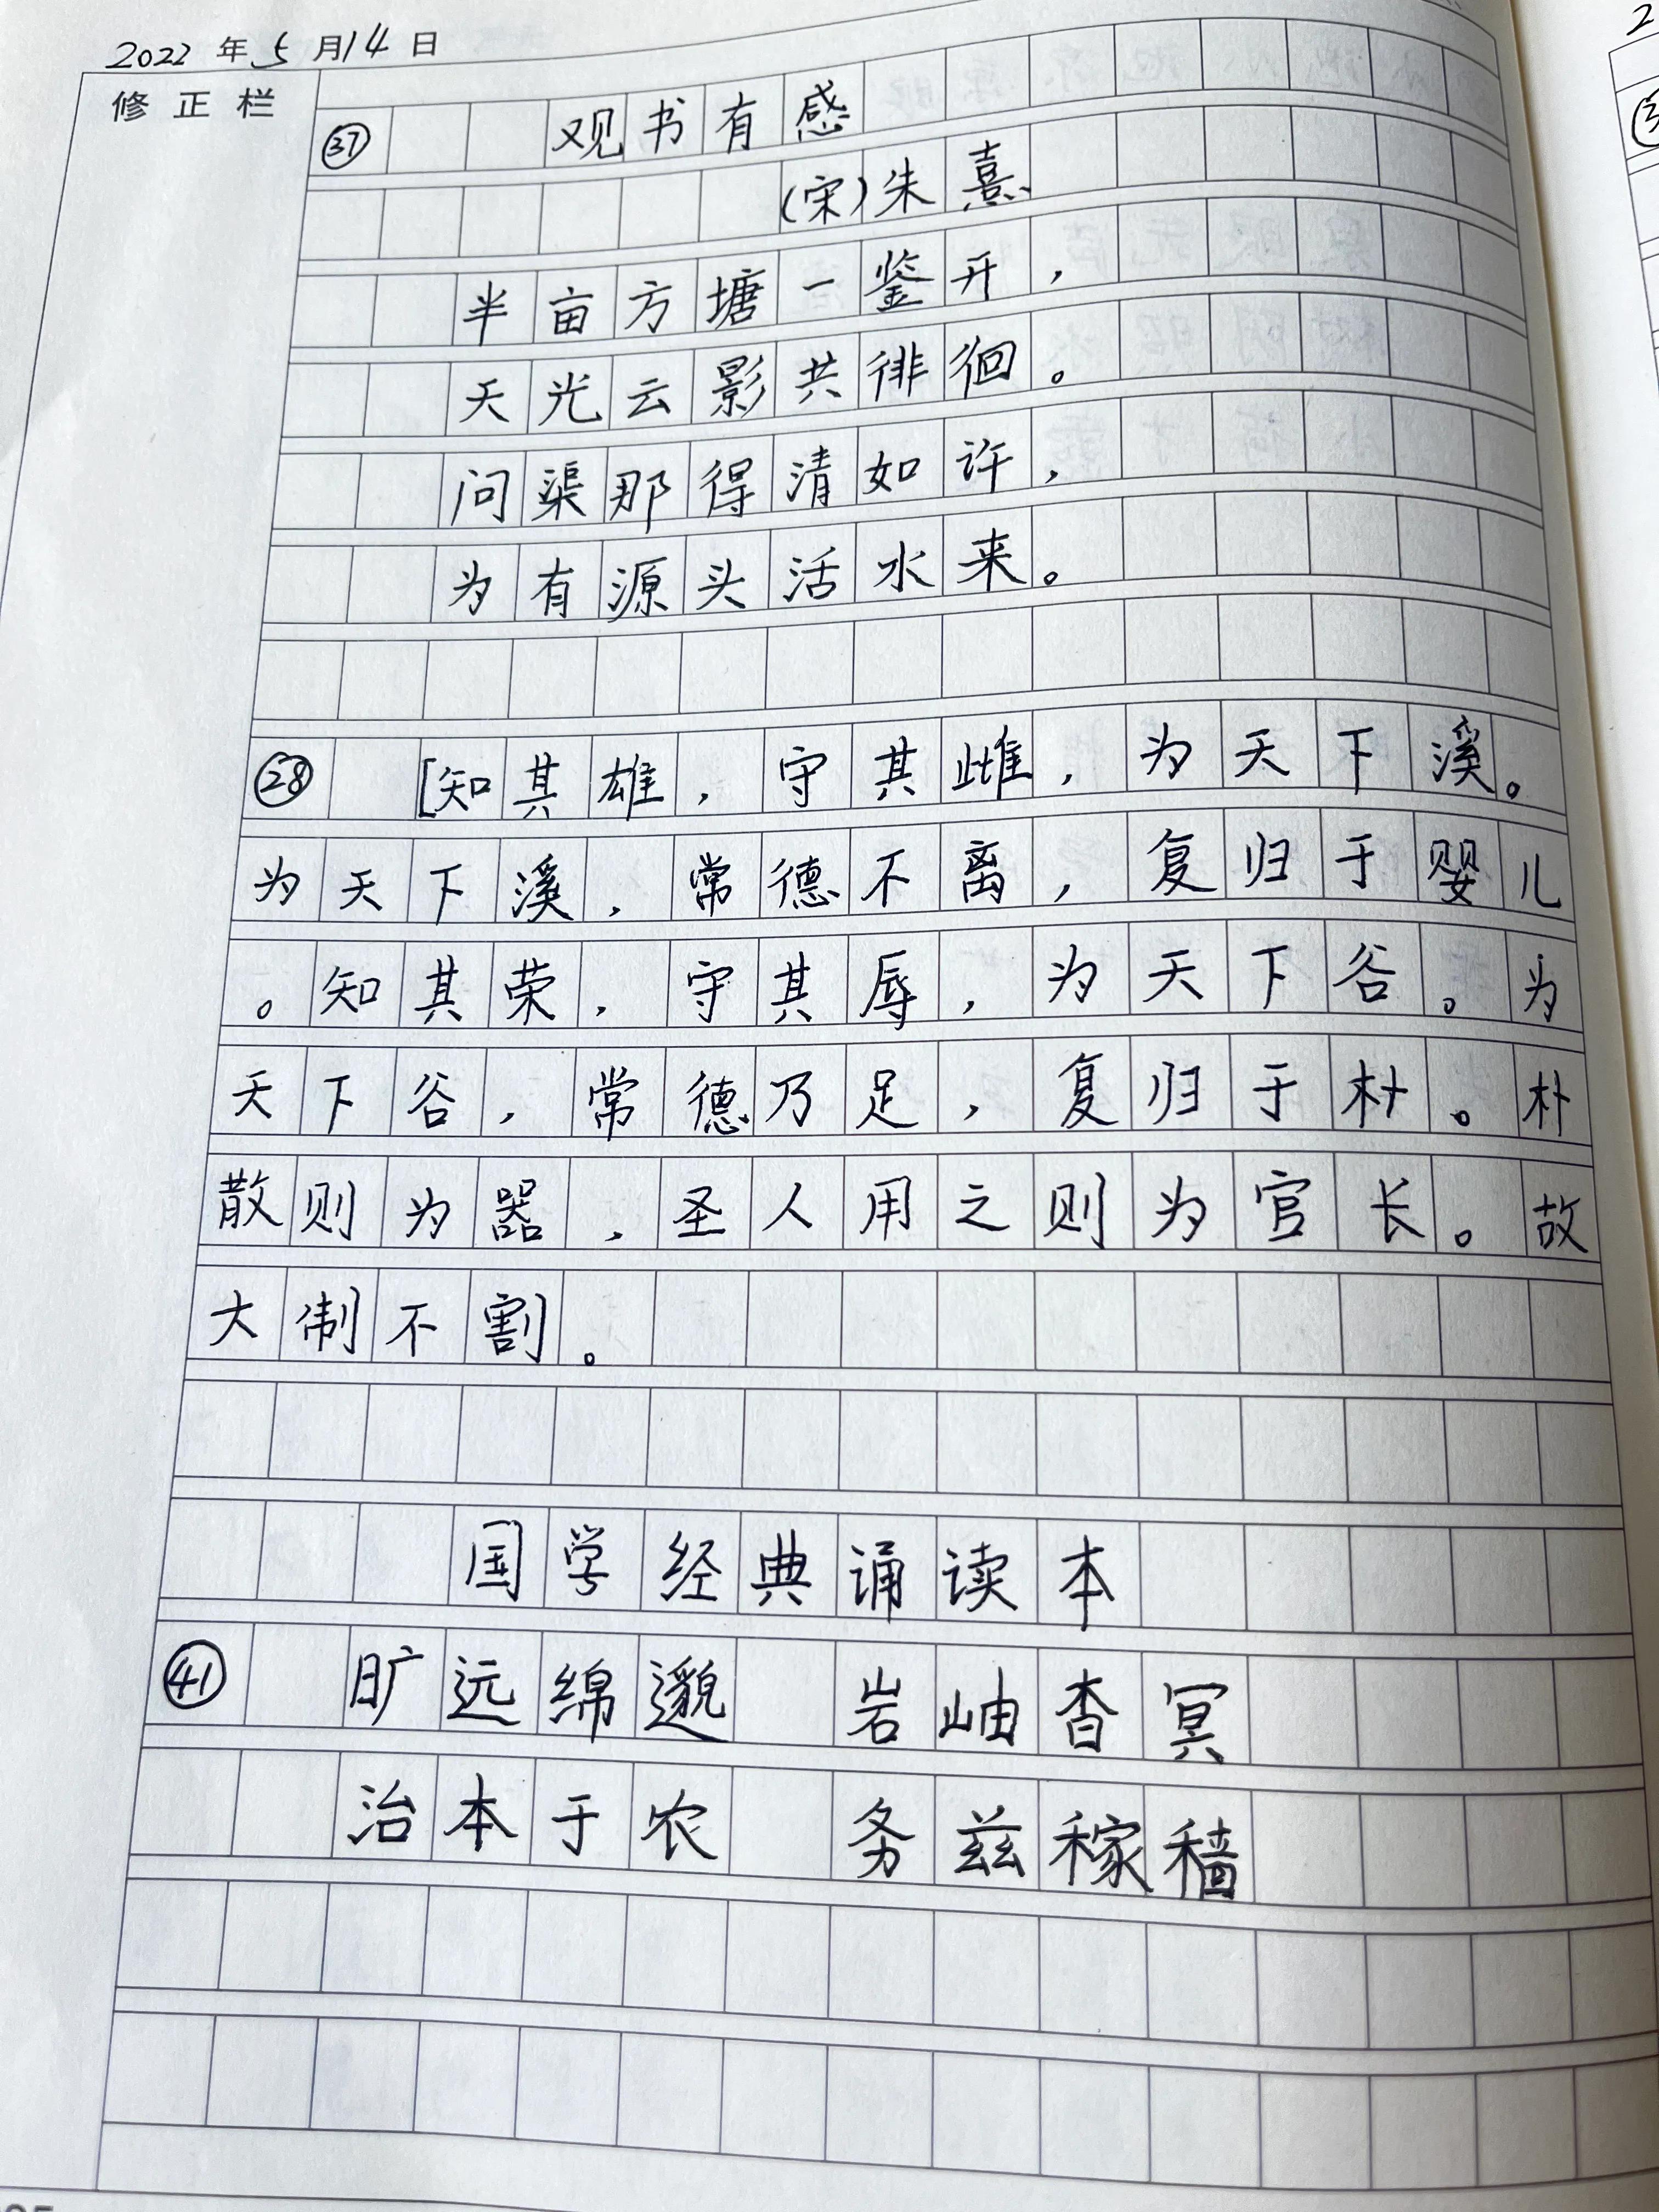 2022年5月14日
修正栏
㊲ 观书有感
(宋)朱熹
半亩方塘一鉴开，
天光云影共徘徊。
问渠那得清如许，
为有源头活水来。
㉘ [知其雄，守其雌，为天下溪。
为天下溪，常德不离，复归于婴儿
。知其荣，守其辱，为天下谷。为
天下谷，常德乃足，复归于朴。朴
散则为器，圣人用之则为官长。故
大制不割。
国学经典诵读本
㊶ 旷远绵邈 岩岫杳冥
治本于农 务兹稼穑